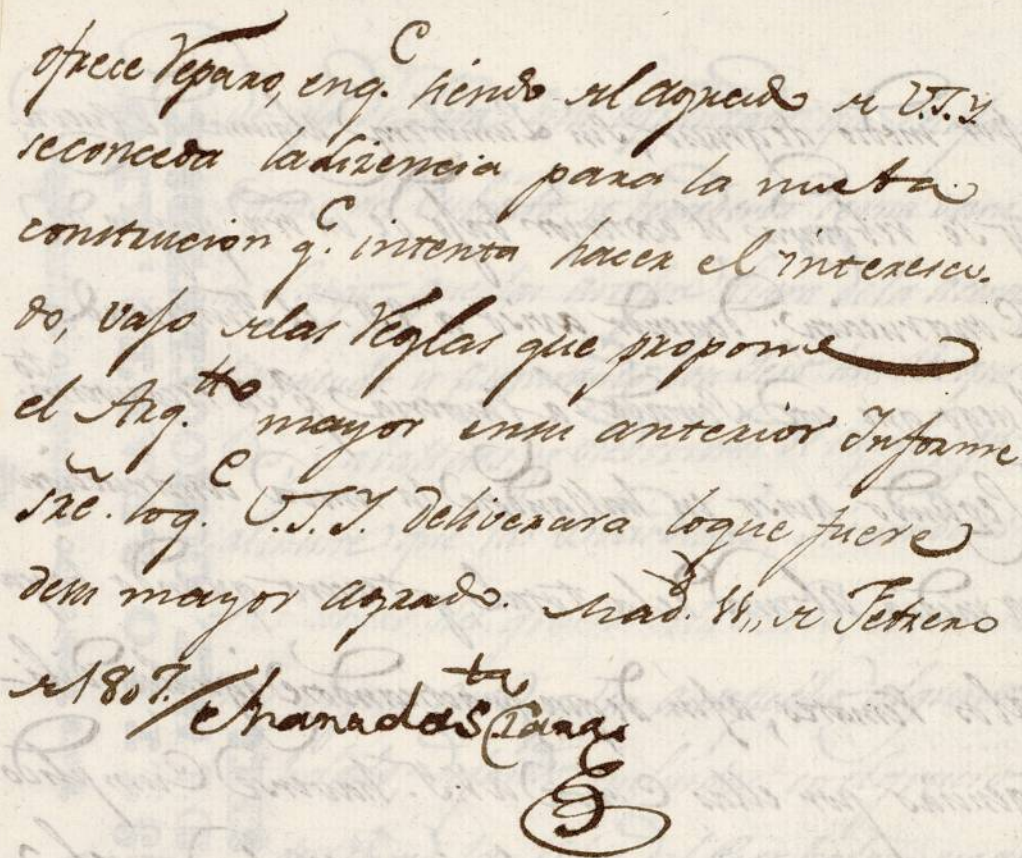 ofrece Reparo, en q.e siendo del agrado de V.S.Y.
se conceda la lizencia para la nueba
construcion q.e intenta hacer el interesa-
do, vajo de las Reglas que propone
el Arq.tto mayor en su anterior Informe
sr̃e. lo q.e V.S.Y. deliverara lo que fuere
de su mayor agrado. Mad.d 11,, de Febrero
de 1807./